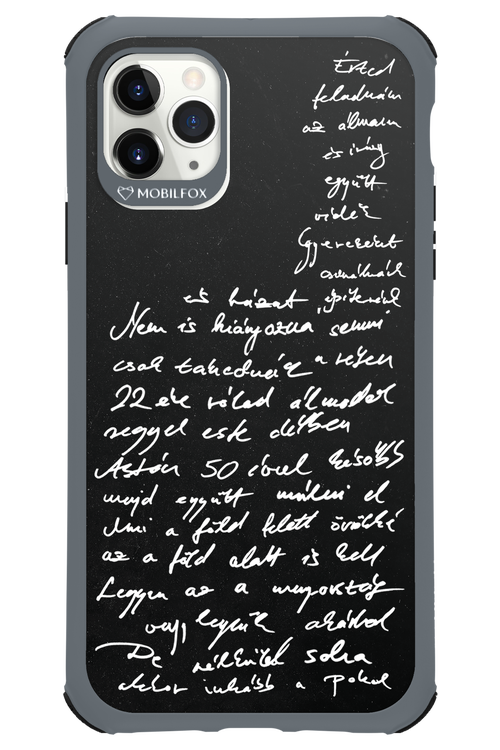 MOBILFOX
Érted
feladnám
az álmom
és irány
együtt
vidék
Gyerekeket
csinálnánk
és házat építenénk
Nem is hiányozna semmi
csak takaródnánk a
22 éve rólad álmodok
reggel este délben
Aztán 50 évvel később
majd együtt múlni el
Ami a föld felett örökké
az a föld alatt is kell
Legyen az a mennyország
vagy legyünk akárhol
De nélküled soha
akkor inkább a Pokol